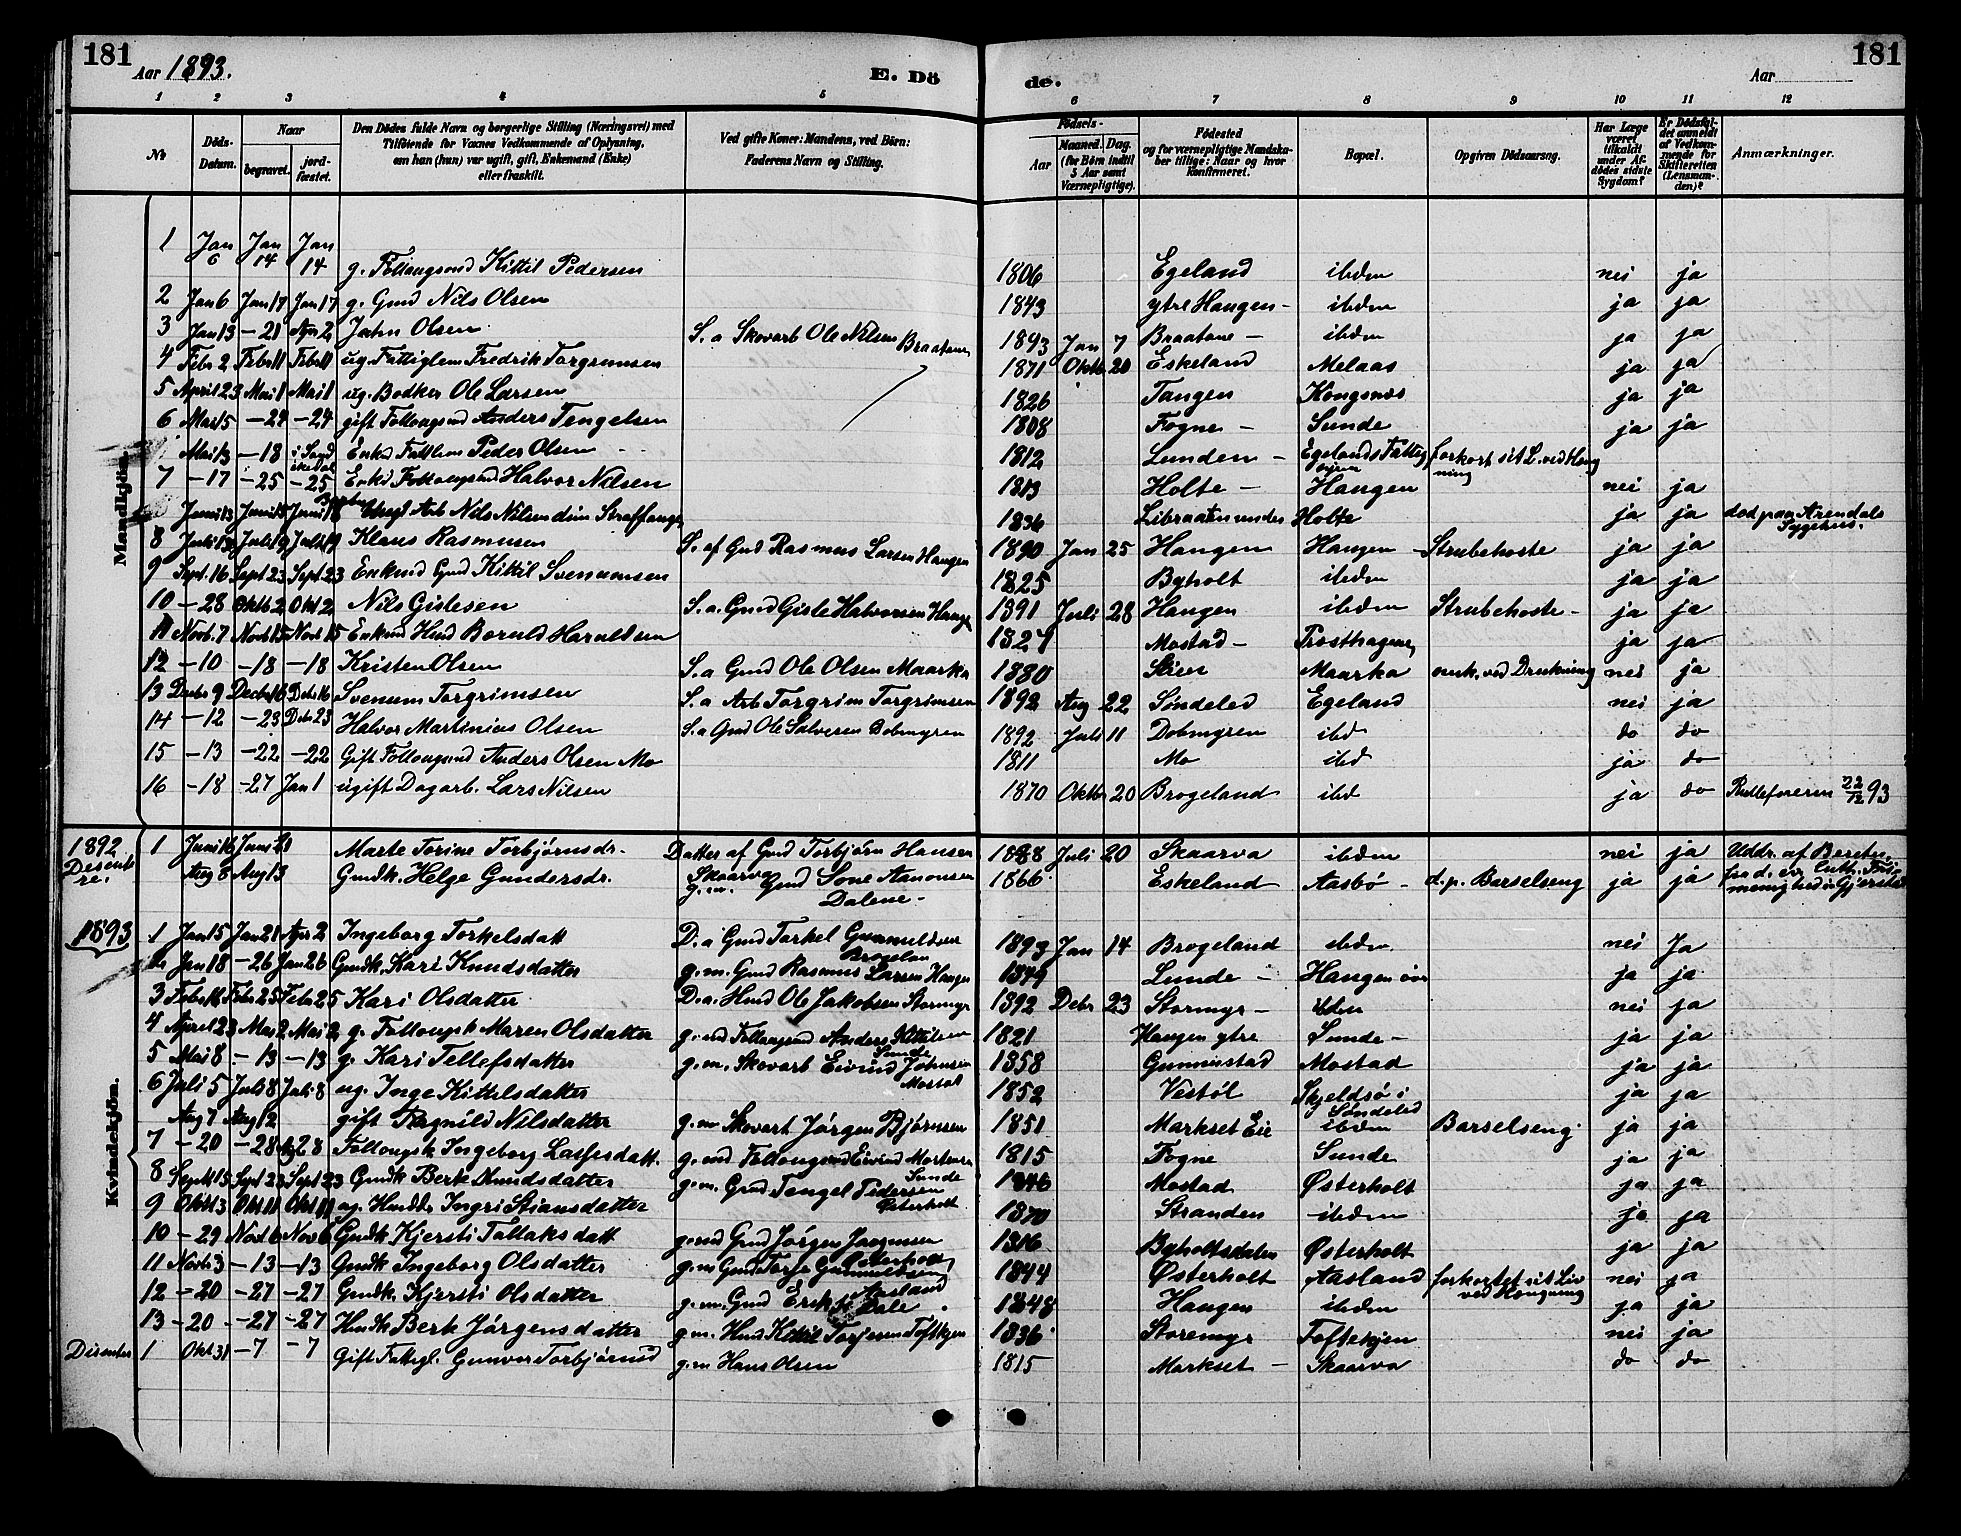 181
Aar 1893.
E. Dö
de.
Aar
181
1 2 3 4 5 6 7 8 9 10 11 12
№
Döds-Datum.
Naar
begravet.
jord-fæstet.
Den Dödes fulde Navn og borgerlige Stilling (Næringsvei) med
Tilföiende for Voxnes Vedkommende af Oplysning,
om han (hun) var ugift, gift, Enkemand (Enke)
eller fraskilt.
Ved gifte Koner: Mandens, ved Börn:
Faderens Navn og Stilling.
Födsels-
Aar
Maaned. Dag.
(for Börn indtil
5 Aar samt
Værnepligtige).
Födested
og for værnepligtige Mandska-
ber tillige: Naar og hvor
konfirmeret.
Bopæl.
Opgiven Dödsaarsag.
Har Læge
været
tilkaldt
under Af-
dödes sidste
Sygdom?
Er Dödsfal-
det anmeldt
af Vedkom-
mende for
Skifteretten
(Lensman-
den)?
Anmærkninger.
Mandkjön.
1 Jan 6 Jan 14 Jan 14 g. Föllougsmd Kittil Pedersen 1806 Egeland ibidem nei ja
2 Jan 6 Jan 17 Jan 17 g. Gmd Nils Olsen 1843 ytre Haugen - ibidem ja ja
3 Jan 13 - 21 Apr 2 John Olsen S. a Skovarb Ole Nilsen Braatane 1893 Jan 7 Braatane - ibidem ja ja
4 Febr 2 Febr 11 Febr 11 ug. Fattiglem Fredrik Torgrimsen 1871 Oktb 20 Eskeland Melaas ja ja
5 April 23 Mai 1 Mai 1 ug. Bödker Ole Larsen 1826 Tangen Kongsnæs ja ja
6 Mai 15 - 24 - 24 gift Follougsmd Anders Tengelsen 1808 Fogne - Sunde ja ja
Mai 13 - 18 i Sogd Enkd Fattlem Peder Olsen 1812 Lunden - Egelands Fattig forkort sit L. ved Hæng
ning
7 - 17 - 25 - 25 Enkd Follougsmd Halvor Nilsen 1813 Holte - Haugen nei ja
Juni 13 Juni 15 Juni 18 Arb Nils Nilsen 1836 Libraaten under Holte ja ja död paa Arendals
Sygehus.
8 Juli 13 Juli 19 Juli 19 Klaus Rasmusen S. af Gmd Rasmus Larsen Haugen 1890 Jan 25 Haugen Haugen Strubehoste ja ja
9 Sept. 16 Sept 23 Sept 23 Enkmd Gmd Kittil Svenumsen 1825 Byholt ibidem ja ja
10 - 28 Oktb 2 Okt 2 Nils Gislesen S. a. Gmd Gisle Halvorsen Hauge 1891 Juli 28 Haugen ibidem Strubehoste - ja ja
11 Novb. 7 Novb 15 Novb 15 Enkmd Hmd Boruld Haraldsen Mostad - Prosthagene ja ja
12 - 10 - 18 - 18 Kristen Olsen S. a Gmd Ole Olsen Maarka 1880 Skien Maarka omk. ved Drukning nei ja
13 Decbr 9 Decbr 16 Debr 16 Svenum Torgrimsen S. a Arb Torgrim Torgrimsen 1892 Aug 22 Søndeled Egeland nei ja
14 - 12 - 23 Debr 23 Halvor Martinius Olsen S. a Gmd Ole Salvesen Dobmyren 1892 Juli 11 Dobmyren ibd do do
15 - 13 - 22 - 22 Gift Föllougsmd Anders Olsen Mo 1811 Mo ibd ja do
16 - 18 - 27 Jan 1 ugift Dagarb. Lars Nilsen 1870 Oktb 20 Brogeland ibd ja do 22/12 93
1892
Disente-
re.
1 Juni 16 Juni 21 Marte Torine Torbjørnsdr. Datter af Gmd Torbjørn Hansen Skaarva 1888 Juli 20 Skaarva ibidem nei ja Uddr. af Beretn.
Aug 8 Aug 13 Gmdk. Helge Gundersdr. g. m. Gmd Sone Aanonsen Dalene - 1866 Eskeland Aasbö - d. p. Barselseng ja ja fra d. ev. luth. Fri-
menighed i Gjerstad
1893
Kvindekjön.
1 Jan 15 Jan 21 Apr 2 Ingeborg Torkelsdatt D. a Gmd Torkel Gunnuldsen Brogelan 1893 Jan 14 Brogeland ibidem nei Ja
2 Jan 18 - 26 Jan 26 Gmdk. Kari Knudsdatter g. m. Gmd Rasmus Larsen Haugen Lunde - Haugen övr ja ja
3 Febr 16 Febr 25 Febr 25 Kari Olsdatter D. a. Hmd Ole Jakobsen Stormyr 1892 Debr 23 Stormyr - ibden nei ja
4 April 23 Mai 2 Mai 2 g. Follougsk Maren Olsdatter g. md Follougsmd Anders Kittilsen Sunde 1821 Haugen ytre Sunde - ja ja
5 Mai 8 - 13 - 13 g. Kari Tellefsdatter g. m. Skovarb Eivind Johnsen Mostad 1858 Gunnestad Mostad ja ja
6 Juli 5 Juli 8 Juli 8 ug. Inge Kittelsdatter 1852 Vestöl Skjeldsö i Söndeled ja ja
Aug 7 Aug 12 gift Ragnild Nilsdatter g. m Skovart Jørgen Bjørnsen 1851 Markset Eie ibidem Barselseng ja ja
7 - 20 - 28 Ag 28 Follougsk Ingeborg Lassesdatt. g. md Follougsmd Eivind Mortensen Sunde 1815 Fogne Sunde ja ja
8 Septb 15 Sept 23 Sept 23 Gmdk Berte Amundsdatter g. m. Gmd Tengel Pedersen Østerholt 1846 Mostad Østerholt ja ja
9 Oktb 3 Okt 11 Okt 11 ug. Hmdd. Ingri Stiansdatter 1870 Stranden ibidem ja ja
10 - 29 Nov 6 Nov 6 Gmdk Kjersti Tallaksdatt g. md Gmd Jørgen Jørgensen Østerholt 1816 Byholtsdalen Østerholt ja ja
11 Novb 3 - 13 - 13 Gmdk Ingeborg Olsdatter g. m Gmd Torje Gunnuldsen Aasland 1844 Østerholt Aasland forkortet sit Liv
ved Hængning nei ja
12 - 20 - 27 - 27 Gmdk. Kjersti Olsdatter g. m. Gmd Erik Dale 1848 Haugen ibidem ja ja
13 - 20 - 27 - 27 Hmdk Berte Jörgensdatter g. m. Hmd Kittil Torjesen Toftkjen 1836 Storemyr Toftekjen nei ja
Disenter 1 Okt 31 - 7 - 7 Gift Fattigl. Gunvor Torbjørnsd g. m Hans Olsen 1815 Markset - Skaarva do do